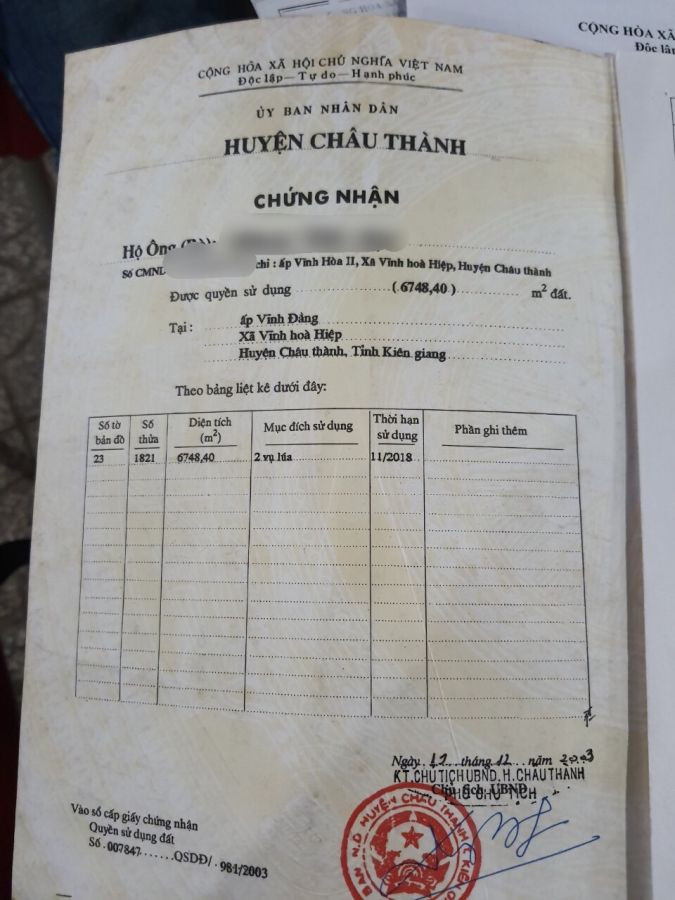 CỘNG HÒA XÃ
Độc lập
CỘNG HÒA XÃ HỘI CHỦ NGHĨA VIỆT NAM
Độc lập - Tự do - Hạnh phúc
ỦY BAN NHÂN DÂN
HUYỆN CHÂU THÀNH
CHỨNG NHẬN
Hộ Ông (Bà):
Số CMND chỉ : ấp Vĩnh Hòa II, Xã Vĩnh hoà Hiệp, Huyện Châu thành
Được quyền sử dụng ( 6748,40 ) m² đất.
Tại : ấp Vĩnh Đằng
Xã Vĩnh hoà Hiệp
Huyện Châu thành, Tỉnh Kiên giang
Theo bảng liệt kê dưới đây:
Số tờ bản đồ Số thửa Diện tích (m²) Mục đích sử dụng Thời hạn sử dụng Phần ghi thêm
23 1821 6748,40 2 vụ lúa 11/2018
Ngày 12 tháng 12 năm 2003
KT.CHỦ TỊCH UBND.H.CHÂU THÀNH
Chủ tịch UBND
PHÓ CHỦ TỊCH
Vào sổ cấp giấy chứng nhận
Quyền sử dụng đất
Số 007847 QSDĐ/ 981/2003
N.D HUYỆN CHÂU THÀNH